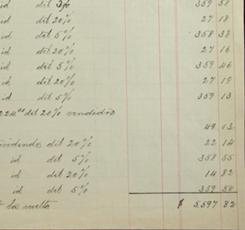 id del 5% 359 58
id del 20% 27 18
id del 5% 358 33
id del 20% 27 16
id del 5% 359 46
id del 20% 27 19
id del 5% 359 13
del 20% vendedió
49 03
dividendo del 20% 22 14
id del 5% 358 55
id del 20% 14 82
id del 5% 359 58
la vuelta $ 5,597 82